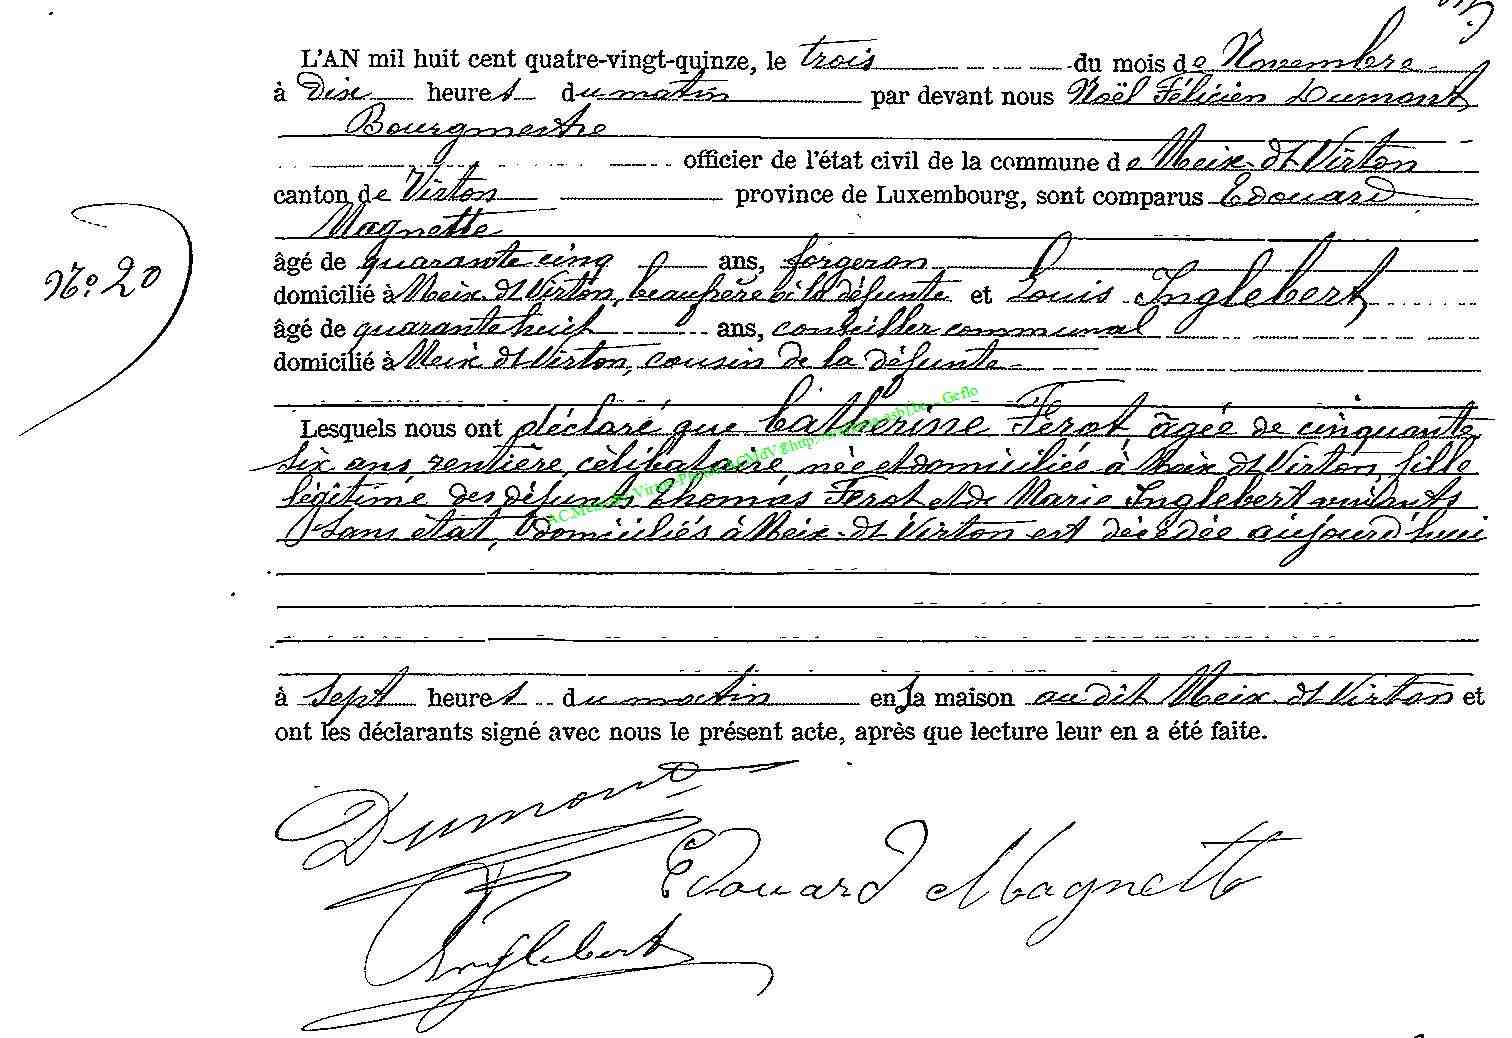 L'AN mil huit cent quatre-vingt-quinze, le trois du mois de Novembre
à Dix heures du matin par devant nous Noël Félicien Dumont
Bourgmestre
officier de l'état civil de la commune de Meix-dt Virton
canton de Virton province de Luxembourg, sont comparus Edouard
Magnette
âgé de quarante cinq ans, forgeron
N° 20
domicilié à Meix dt Virton, beaufrère à la défunte et Louis Inglebert
âgé de quarante huit ans, conseiller communal
domicilié à Meix dt Virton, cousin de la défunte
Lesquels nous ont déclaré que Catherine Ferot âgée de cinquante
six ans rentière, célibataire née et domiciliée à Meix dt Virton, fille
légitime des défunts Thomas Ferot et de Marie Inglebert vivants
sans état, domiciliés à Meix-dt Virton est décédée aujourd'hui
à Sept heures du matin en sa maison au dit Meix dt Virton et
ont les déclarants signé avec nous le présent acte, après que lecture leur en a été faite.
Dumont
Edouard Magnette
Inglebert